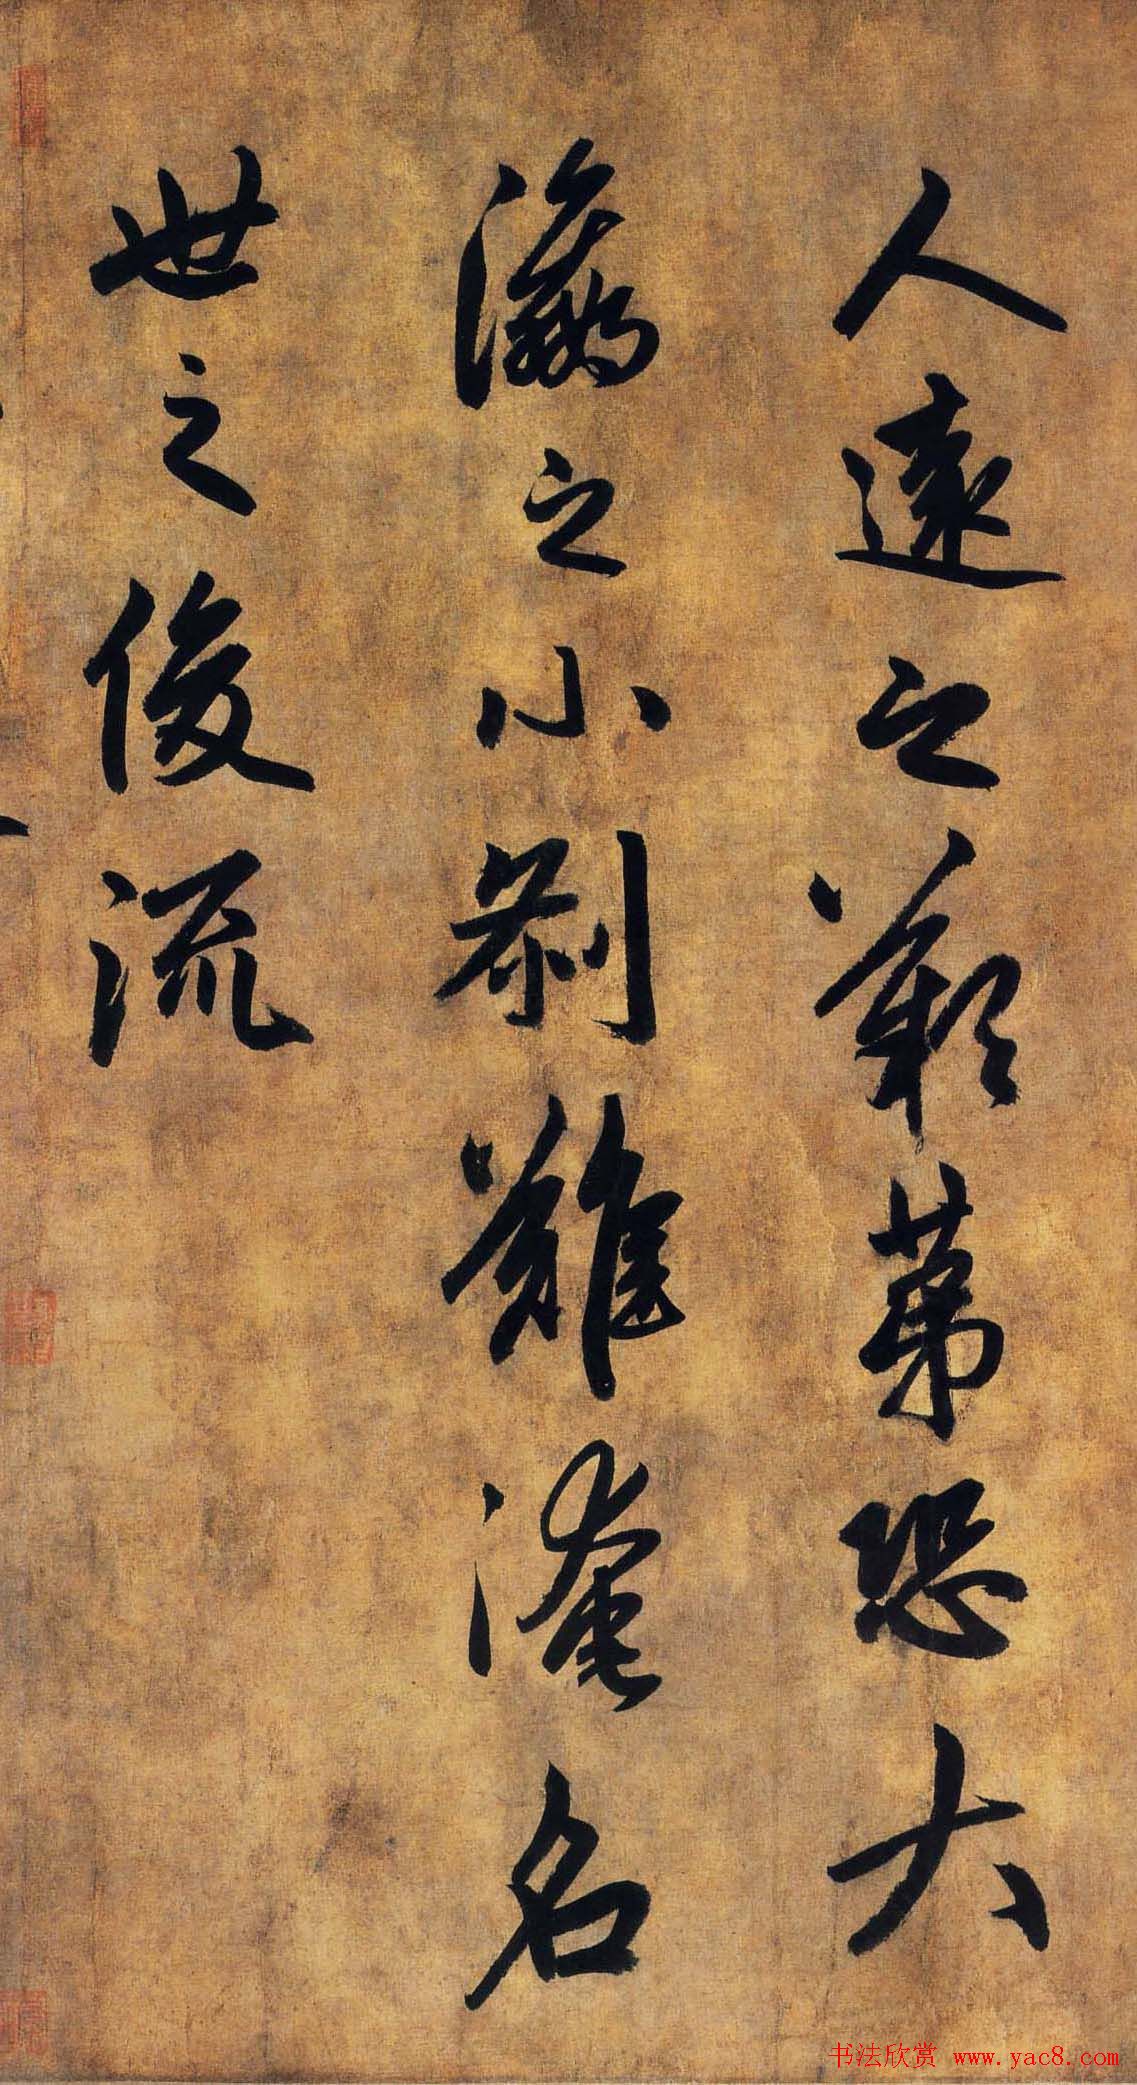 人遠之歎第恐大
瀛之小刹難淹名
世之俊流
书法欣赏 www.yac8.com